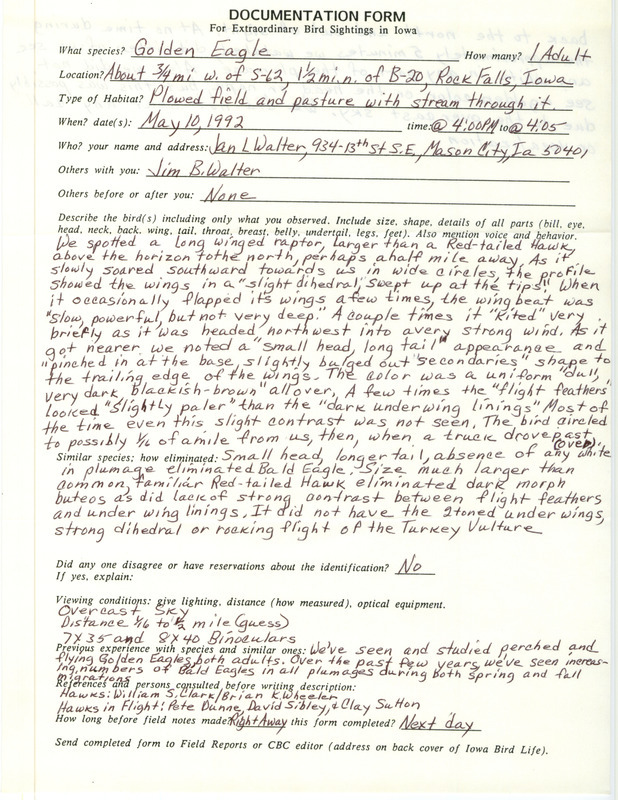 DOCUMENTATION FORM
For Extraordinary Bird Sightings in Iowa
What species? Golden Eagle How many? 1 Adult
Location? About 3/4 mi w. of S-62, 1 1/2 mi. n. of B-20, Rock Falls, Iowa
Type of Habitat? Plowed field and pasture with stream through it.
When? date(s): May 10, 1992 time: @ 4:00PM to @ 4:05
Who? your name and address: Jan L Walter, 934-13th St S.E., Mason City, Ia 50401
Others with you: Jim B. Walter
Others before or after you: None
Describe the bird(s) including only what you observed. Include size, shape, details of all parts (bill, eye,
head, neck, back, wing, tail, throat, breast, belly, undertail, legs, feet). Also mention voice and behavior.
We spotted a long winged raptor, larger than a Red-tailed Hawk,
above the horizon to the north, perhaps a half mile away. As it
slowly soared southward towards us in wide circles, the profile
showed the wings in a "slight dihedral, swept up at the tips." When
it occasionally flapped it's wings a few times, the wing beat was
"slow, powerful, but not very deep." A couple times it "kited" very
briefly as it was headed northwest into a very strong wind. As it
got nearer we noted a "small head, long tail" appearance and
"pinched in at the base, slightly bulged out "secondaries" shape to
the trailing edge of the wings. The color was a uniform "dull,"
very dark blackish-brown" all over. A few times the "flight feathers"
looked "slightly paler" than the "dark under wing linings" Most of
the time even this slight contrast was not seen. The bird circled
to possibly 1/6 of a mile from us, then, when a truck drove past,
(over)
Similar species; how eliminated: Small head, longer tail, absence of any white
in plumage eliminated Bald Eagle. Size much larger than
common, familiar Red-tailed Hawk eliminated dark morph
buteos as did lack of strong contrast between flight feathers
and under wing linings. It did not have the 2 toned under wings,
strong dihedral or rocking flight of the Turkey Vulture
Did any one disagree or have reservations about the identification? No
If yes, explain:
Viewing conditions: give lighting, distance (how measured), optical equipment.
Overcast sky
Distance 1/6 to 1/2 mile (guess)
7X35 and 8X40 Binoculars
Previous experience with species and similar ones: We've seen and studied perched and
flying Golden Eagles, both adults. Over the past few years we've seen increas-
ing numbers of Bald Eagles in all plumages during both spring and fall
migrations
References and persons consulted before writing description:
Hawks: William S. Clark/Brian K. Wheeler
Hawks in Flight: Pete Dunne, David Sibley, & Clay Sutton
How long before field notes made? Right Away this form completed? Next day
Send completed form to Field Reports or CBC editor (address on back cover of Iowa Bird Life).